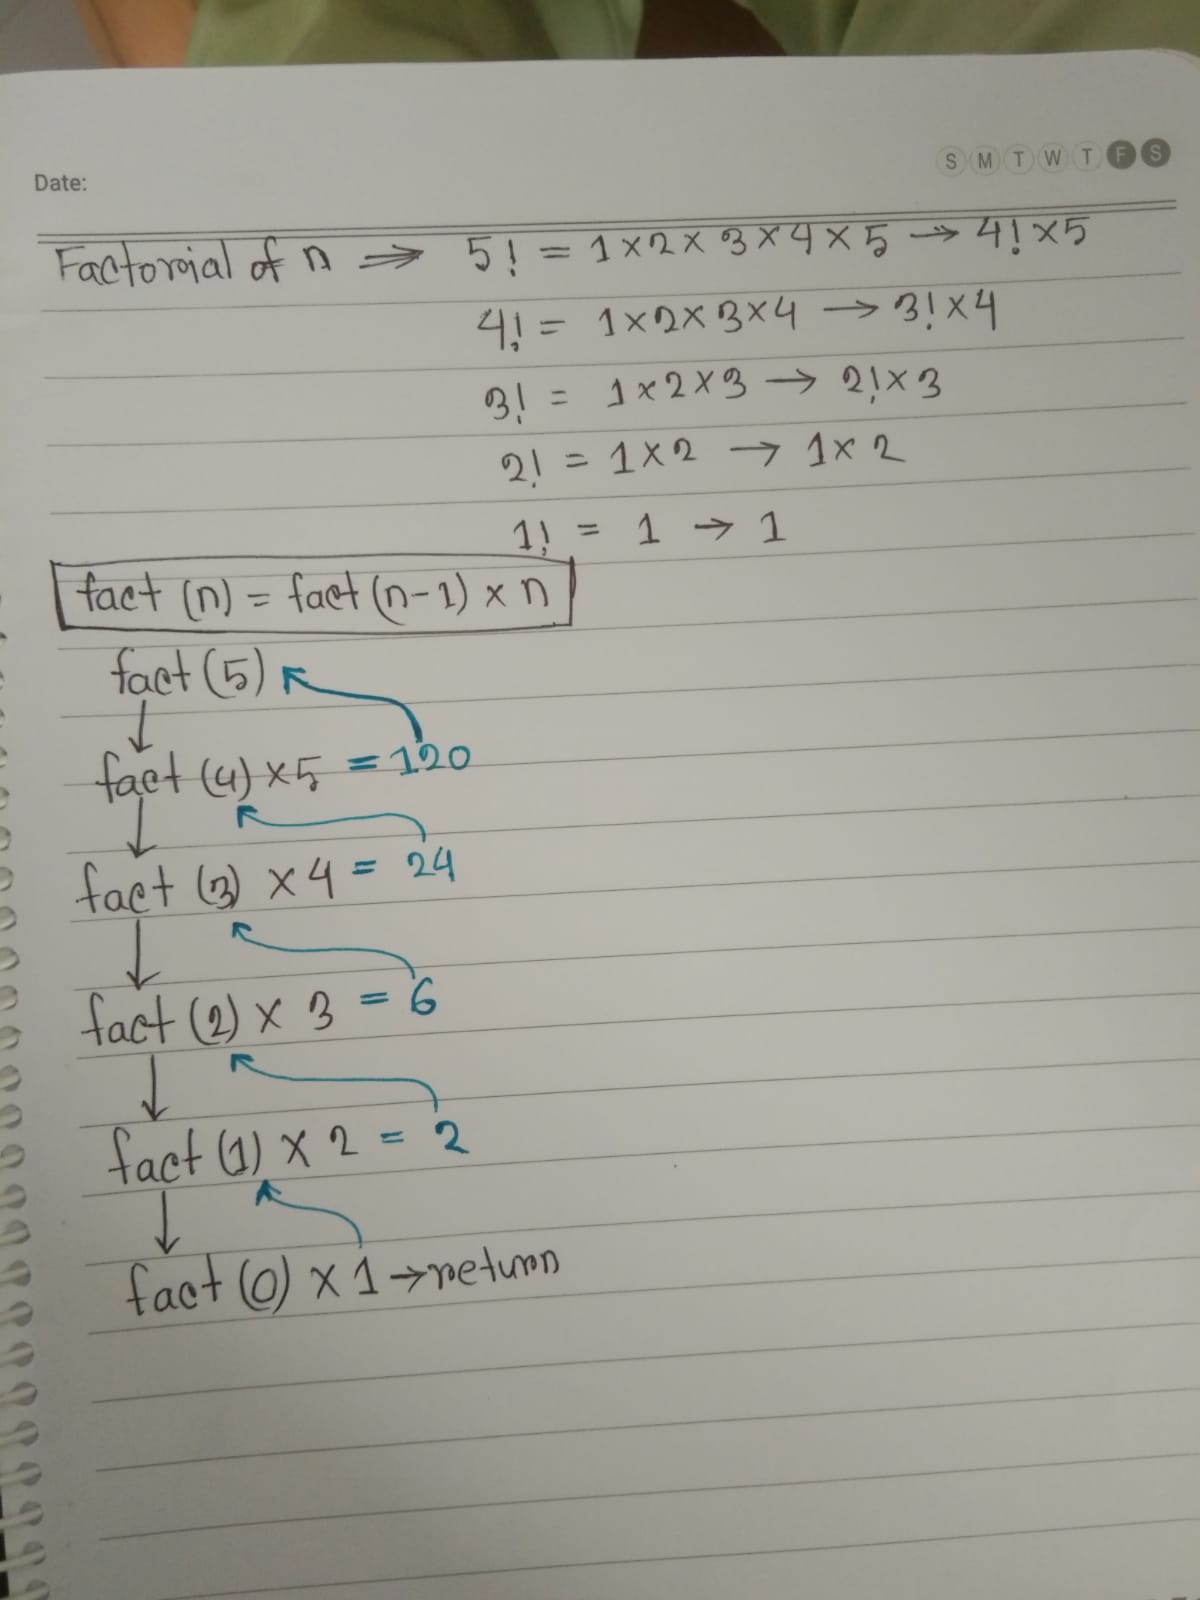 S M T W T F S
Date:
Factorial of n ⇒ 5! = 1×2×3×4×5 → 4!×5
4! = 1×2×3×4 → 3!×4
3! = 1×2×3 → 2!×3
2! = 1×2 → 1×2
1! = 1 → 1
fact (n) = fact (n-1) × n
fact (5)
↓
fact (4) ×5 = 120
↓
fact (3) ×4 = 24
↓
fact (2) × 3 = 6
↓
fact (1) × 2 = 2
↓
fact (0) × 1 → return